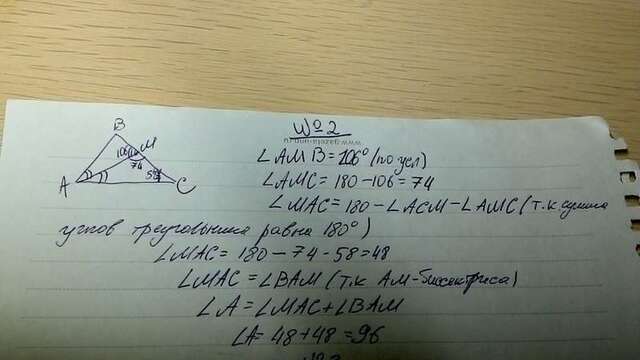 №2
B
106°
M
74
58°
A
C
∠AMB=106° (по усл)
∠AMC=180-106=74
∠MAC=180-∠ACM-∠AMC (т.к сумма
углов треугольника равна 180°)
∠MAC=180-74-58=48
∠MAC=∠BAM (т.к AM-биссектриса)
∠A=∠MAC+∠BAM
∠A=48+48=96